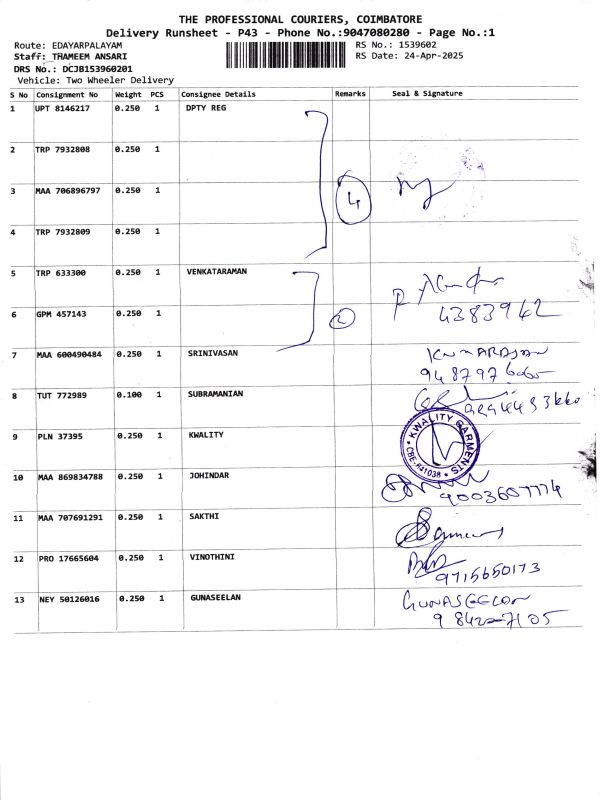 THE PROFESSIONAL COURIERS, COIMBATORE
Delivery Runsheet - P43 - Phone No.:9047080280 - Page No.:1
Route: EDAYARPALAYAM RS No.: 1539602
Staff: THAMEEM ANSARI RS Date: 24-Apr-2025
DRS No.: DCJB153960201
Vehicle: Two Wheeler Delivery
S No Consignment No Weight PCS Consignee Details Remarks Seal & Signature
1 UPT 8146217 0.250 1 DPTY REG
2 TRP 7932808 0.250 1
3 MAA 706896797 0.250 1 4
4 TRP 7932809 0.250 1
5 TRP 633300 0.250 1 VENKATARAMAN
6 GPM 457143 0.250 1 2 4383942
7 MAA 600490484 0.250 1 SRINIVASAN
8 TUT 772989 0.100 1 SUBRAMANIAN
9 PLN 37395 0.250 1 KWALITY KWALITY GARMENTS
10 MAA 869834788 0.250 1 JOHINDAR 9003607774
11 MAA 707691291 0.250 1 SAKTHI
12 PRO 17665604 0.250 1 VINOTHINI 9715650173
13 NEY 50126016 0.250 1 GUNASEELAN GUNASEELAN